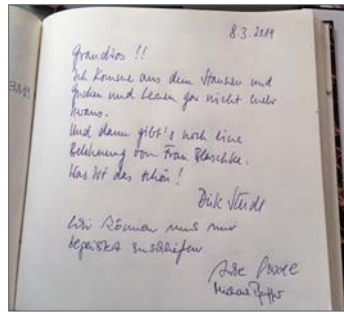 8.3.2019
Grandios !!
Ich komme aus dem Staunen und
Gucken und Lernen gar nicht mehr
heraus.
Und dann gibt's noch eine
Belehnung von Frau Blaschke.
Was ist das schön!
Dirk
Wir können uns nur
begeistert anschließen
Michael